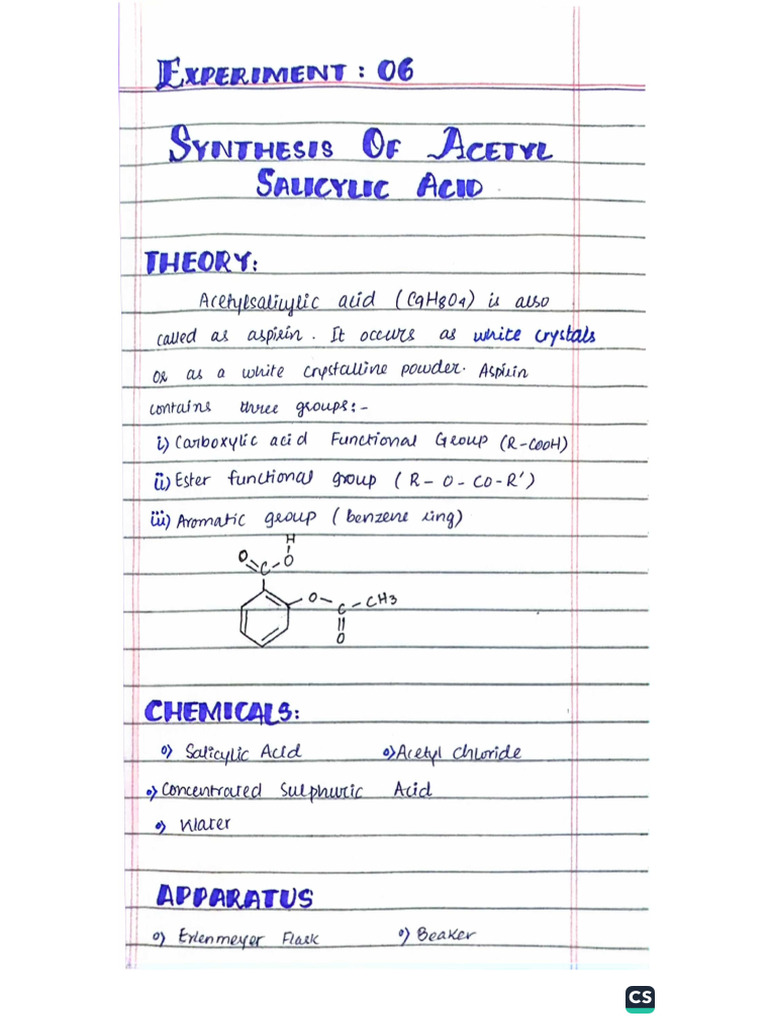 EXPERIMENT: 06
SYNTHESIS OF ACETYL
SALICYLIC ACID
THEORY:
Acetylsalicylic acid (C9H8O4) is also
called as aspirin. It occurs as white crystals
or as a white crystalline powder. Aspirin
contains three groups:-
i) Carboxylic acid Functional Group (R-COOH)
ii) Ester functional group (R-O-CO-R')
iii) Aromatic group (benzene ring)
H
O C-O
O-C-CH3
O
CHEMICALS:
o) Salicylic Acid o) Acetyl Chloride
o) Concentrated Sulphuric Acid
o) Water
APPARATUS
o) Erlenmeyer Flask o) Beaker
CS